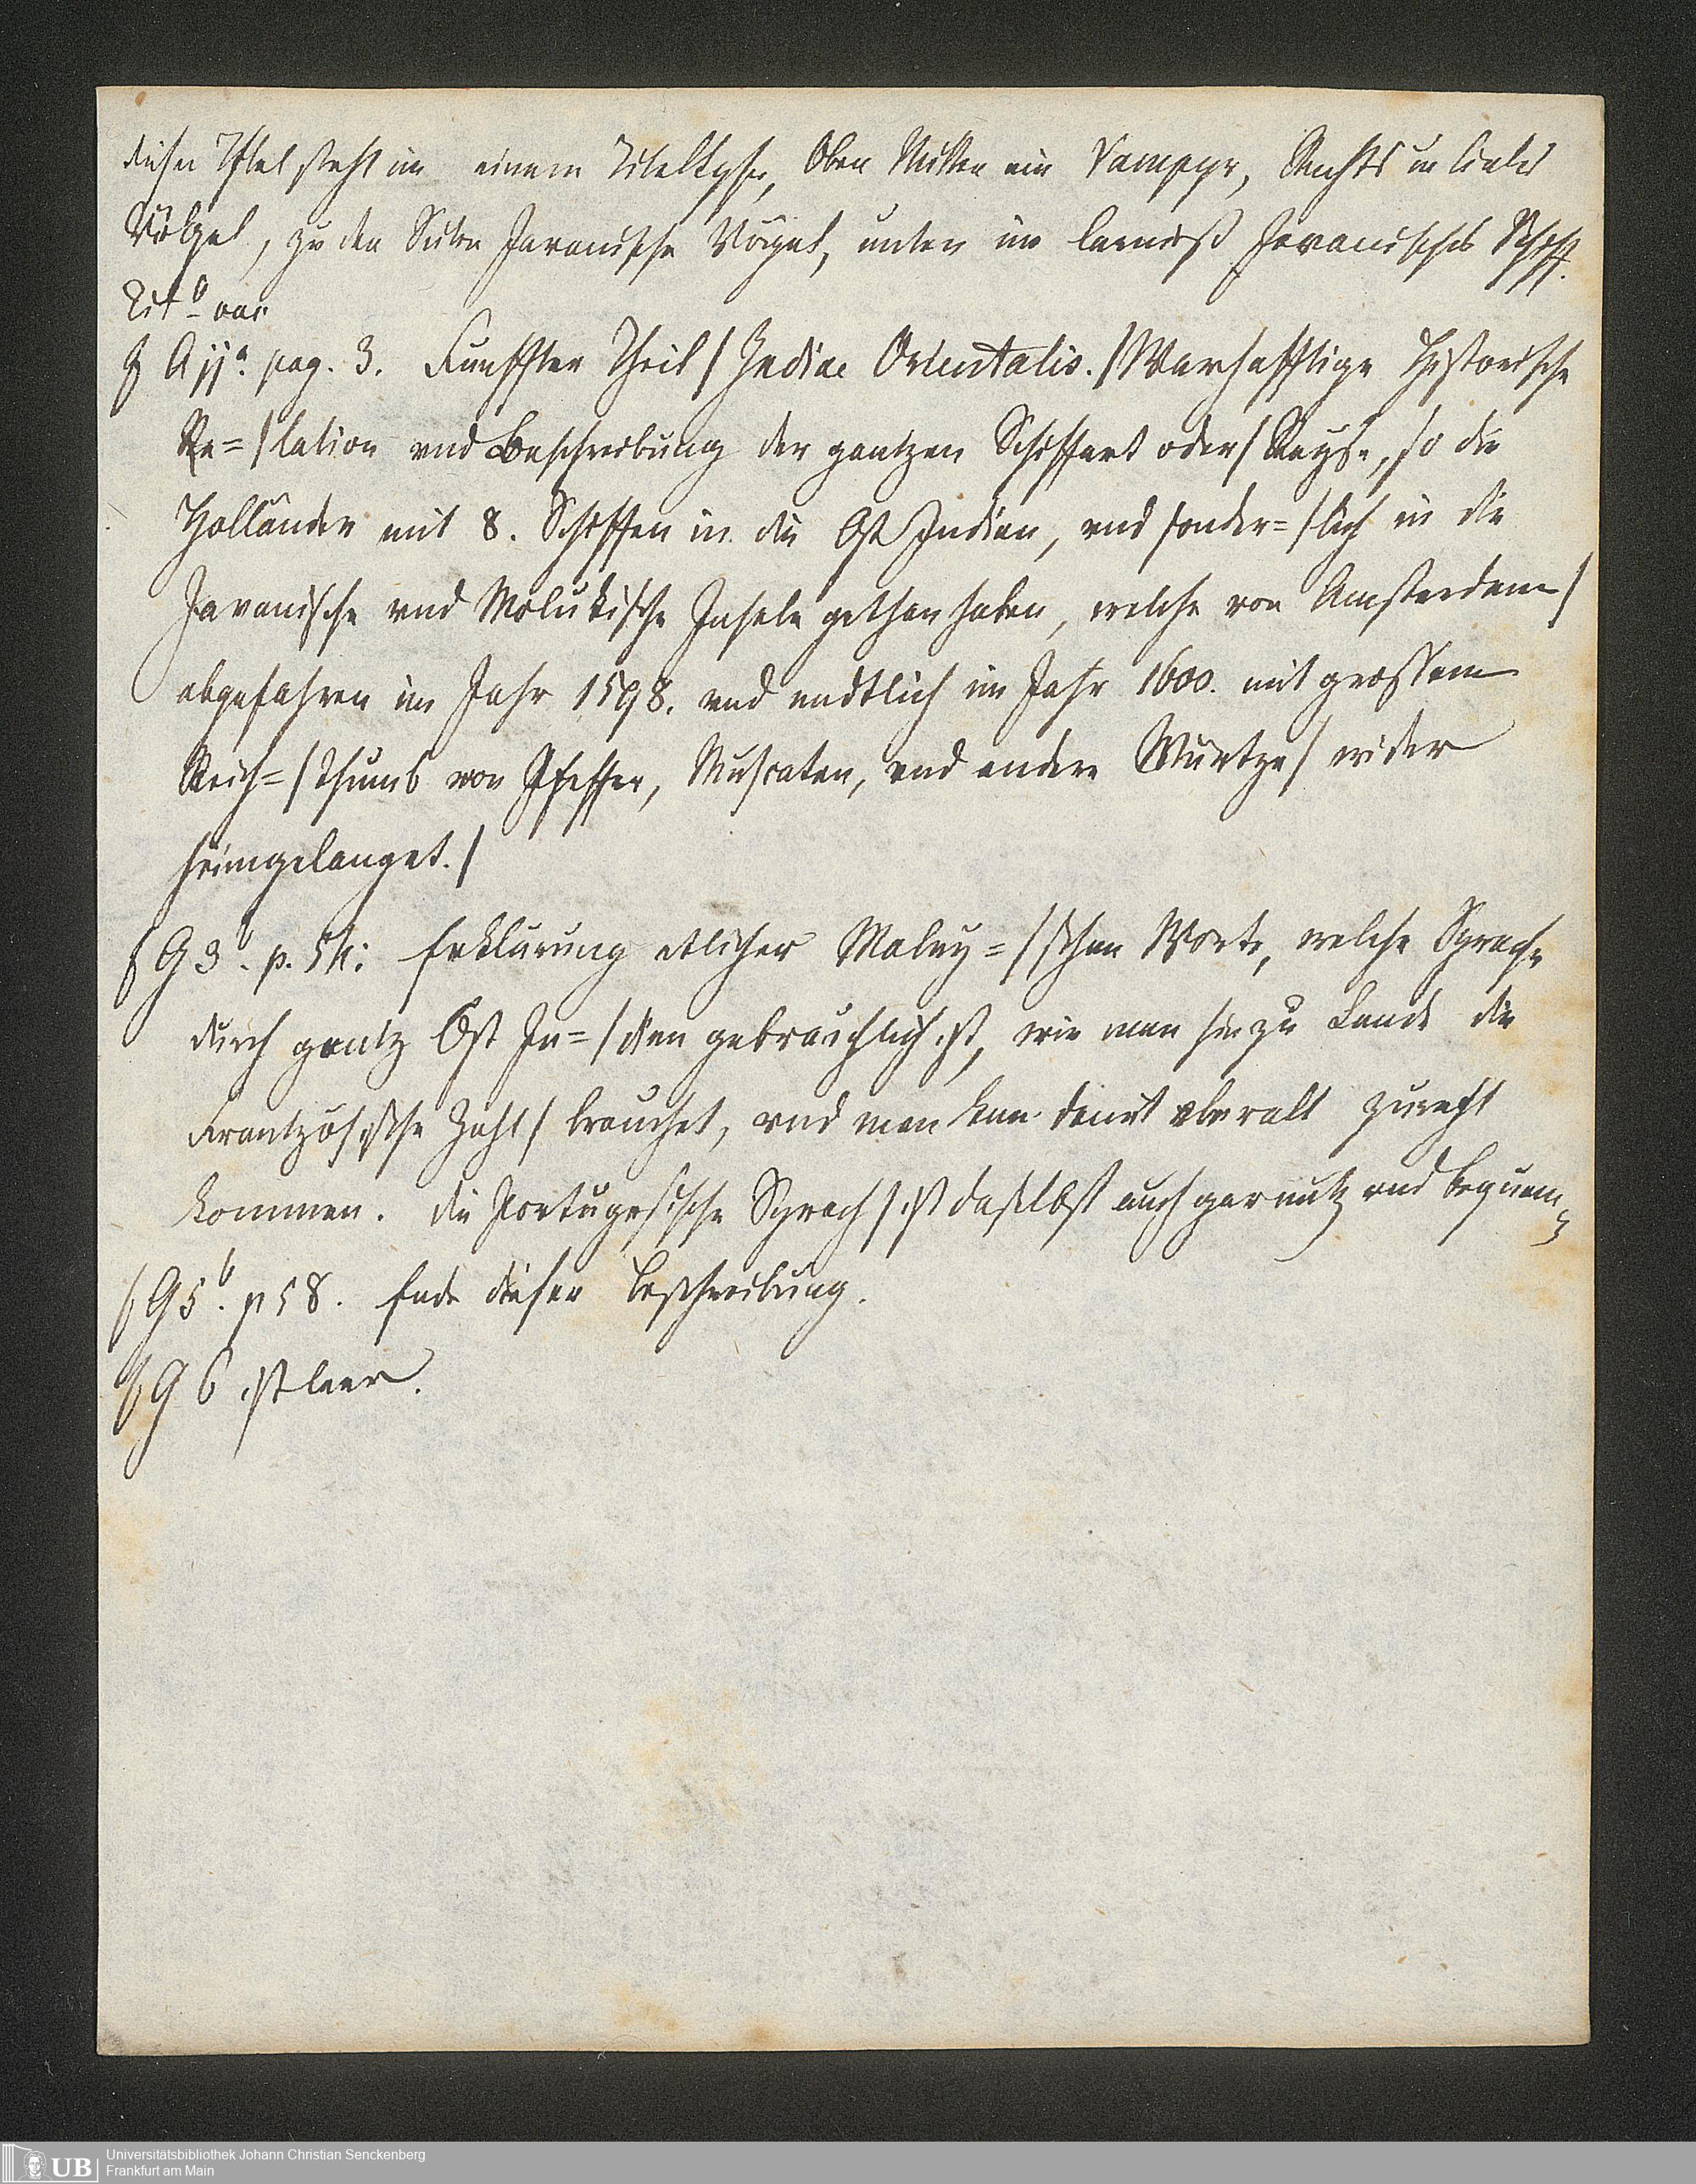 dieser Titel steht in einem Titelkpfr, Oben Mitten ein Vampyr, Rechts u links
Vögel, zu den Seiten Javanische Vögel, unten ein Javanisches Schiff.
Tit b vac
f A ijª. pag. 3. Funffter Theil / Indiae Orientalis. / Warhafftige Hystorische
Re= / lation vnd Beschreibung der gantzen Schiffart oder / Reyse, so die
Holländer mit 8. Schiffen in die Ost Indien, vnd sonder= / lich in die
Javanische vnd Molukische Inseln gethan haben, welche von Amsterdam /
abgefahren im Jahr 1598. vnd endtlich im Jahr 1600. mit grossem
Reich= / thumb von Pfeffer, Muscaten, vnd andere Würtze / wider
heimgelanget. /
f G 3 b. p. 54: Erklärung etlicher Malay= / schen Worte, welche Sprache
durch gantz Ost In= / dien gebräuchlich ist, wie man hie zu Lande die
Frantzösische / brauchet, vnd man kan damit vberall zurecht
kommen. die Portugesische Sprach / ist daselbst auch gar nutz vnd bequem
f G 5 b. p 58. Ende dieser Beschreibung.
f G 6 ist leer.
Universitätsbibliothek Johann Christian Senckenberg
UB Frankfurt am Main